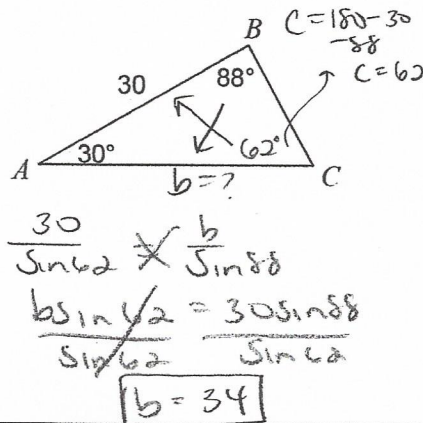 B
C = 180 - 30
- 88
C = 62
30
88°
30°
62°
A
b = ?
C
30/sin62 = b/sin88
bsin62/sin62 = 30sin88/sin62
b = 34